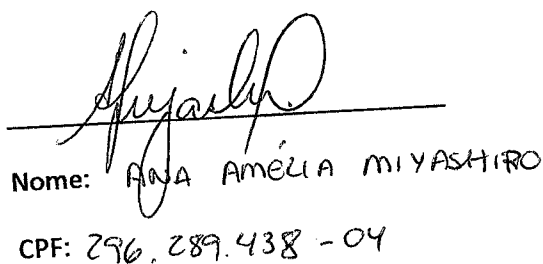 Nome: ANA AMÉLIA MIYASHIRO
CPF: 296.289.438-04